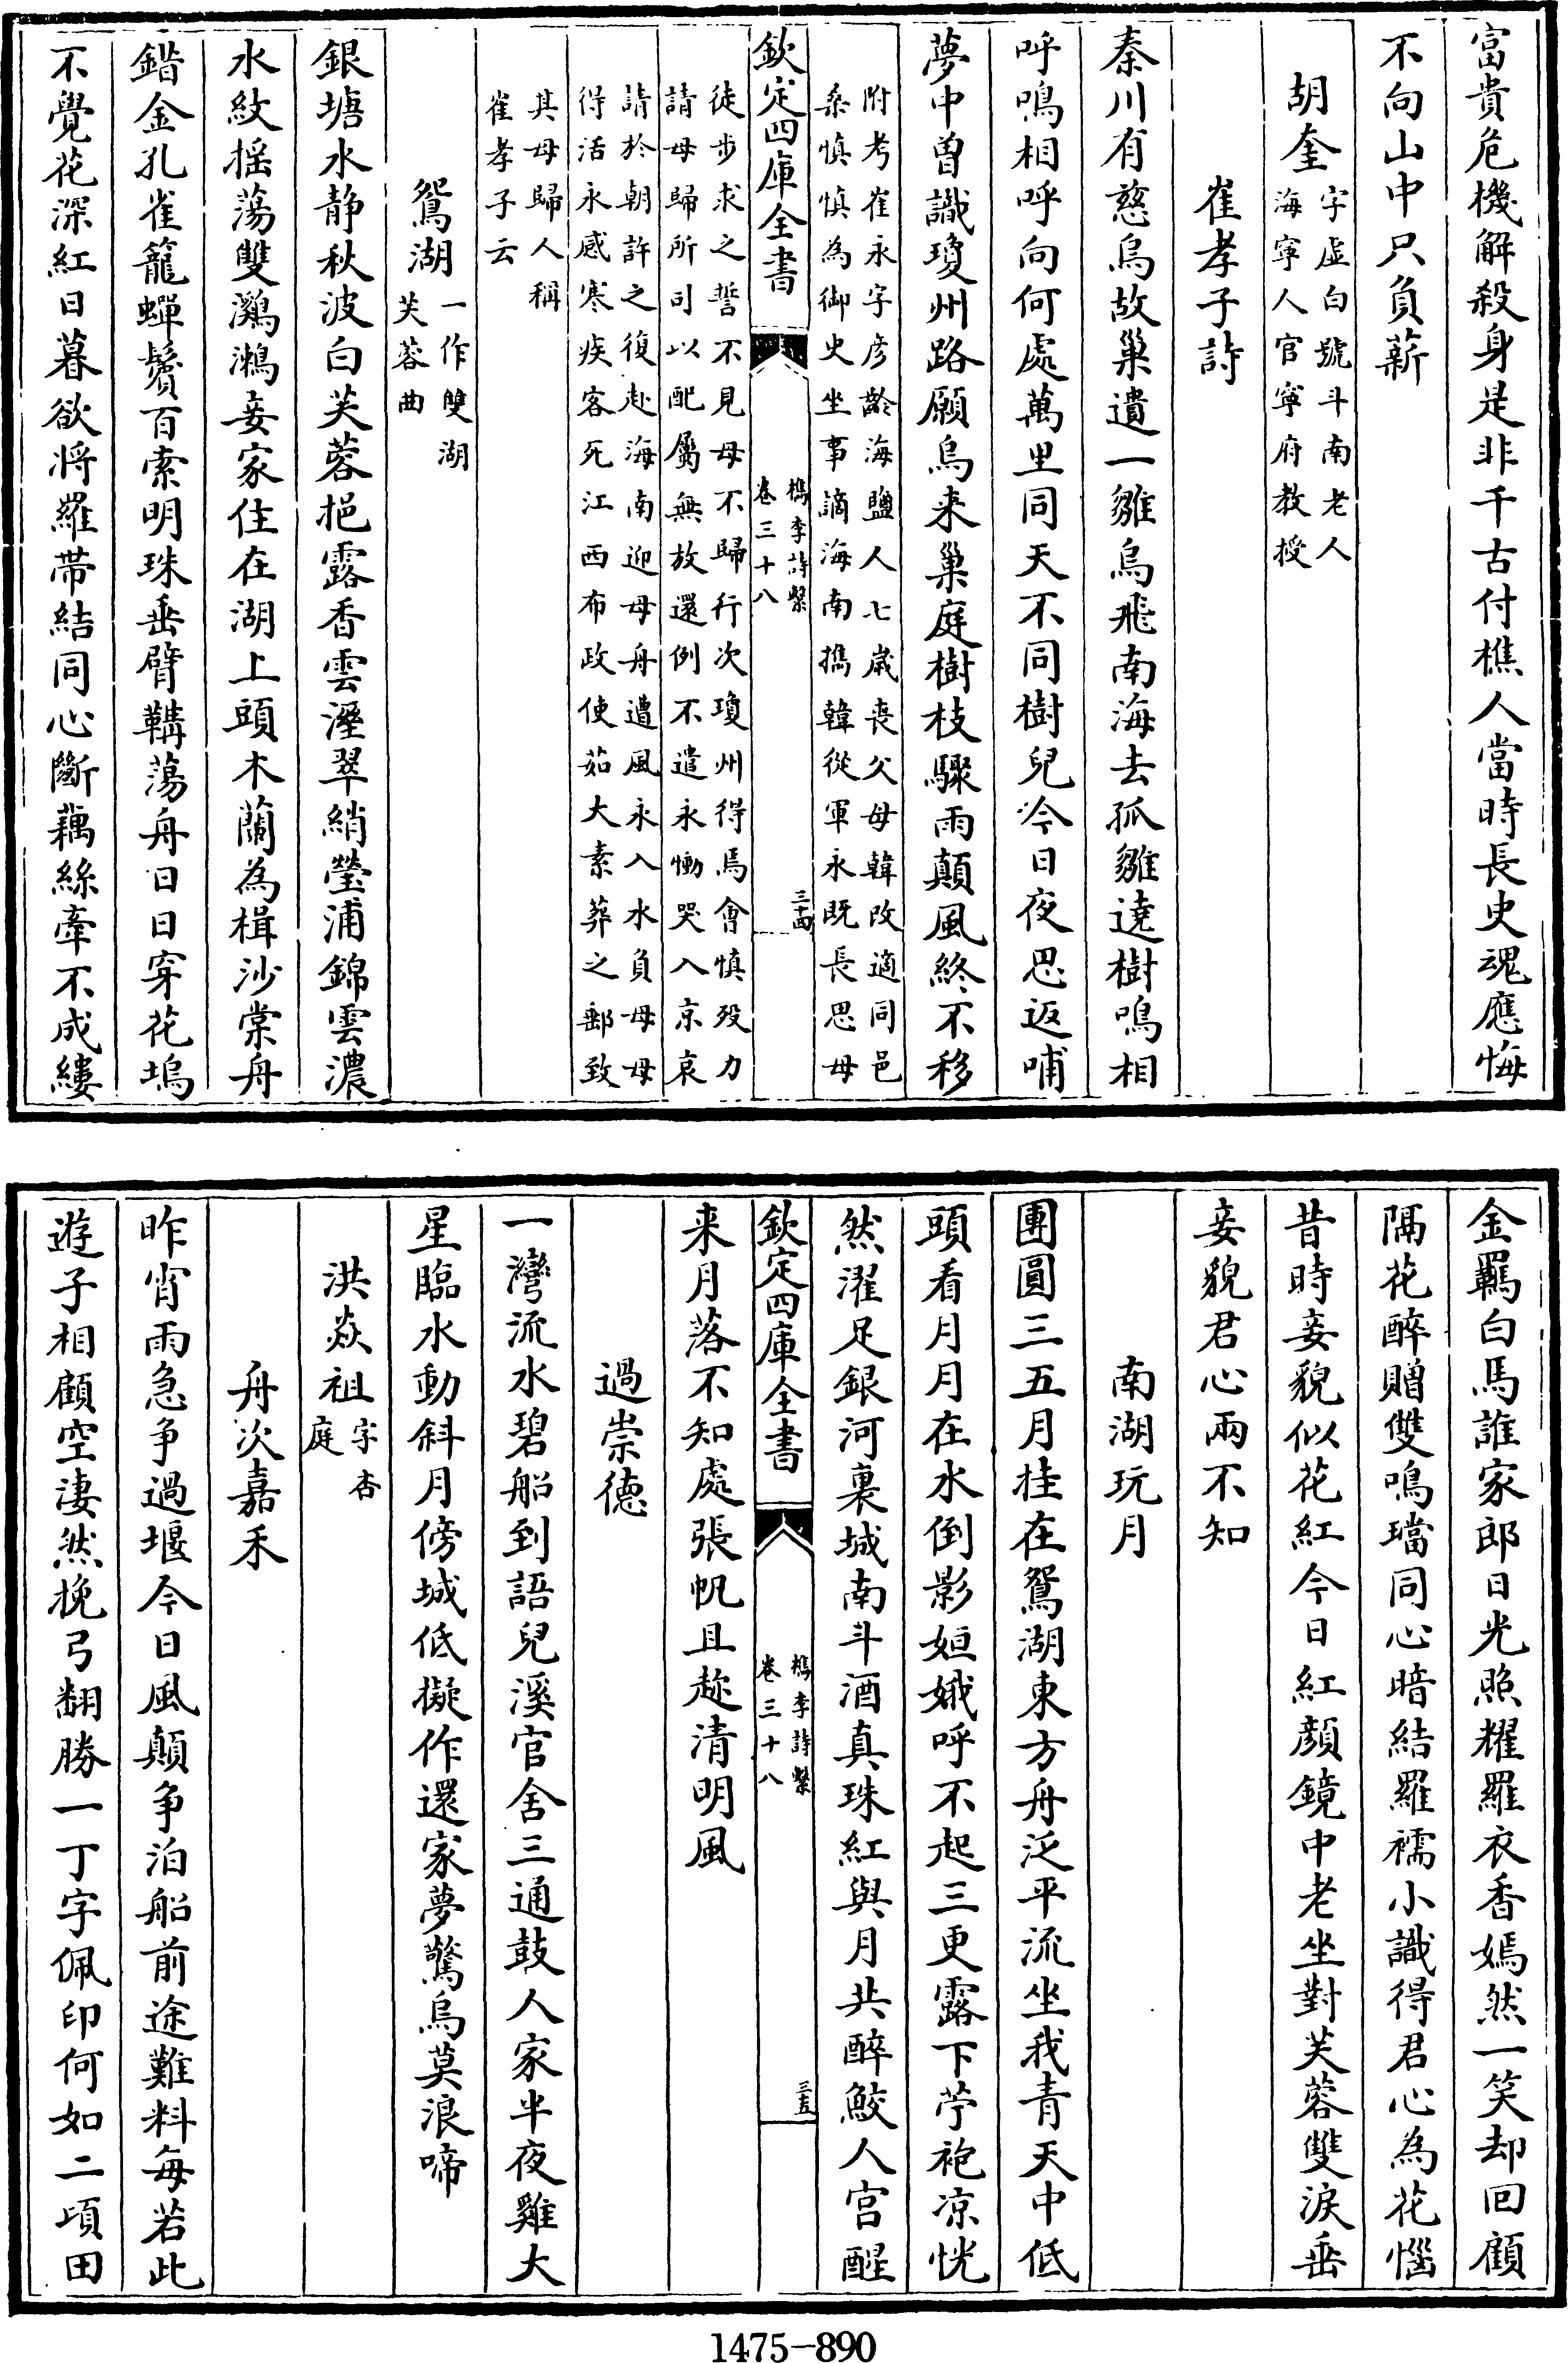 富貴危機解殺身是非千古付樵人當時長史魂應悔
不向山中只負薪
胡奎字虛白號斗南老人
海寧人官寧府教授
崔孝子詩
秦川有慈烏故巢遺一雛烏飛南海去孤雛遶樹鳴相
呼鳴相呼向何處萬里同天不同樹兒今日夜思返哺
夢中曾識瓊州路願烏来巢庭樹枝驟雨顛風終不移
附考崔永字彦齡海鹽人七歲喪父母韓改適同邑
桑慎慎為御史坐事謫海南攜韓從軍永既長思母
欽定四庫全書
檇李詩繫
卷三十八
三十四
徒步求之誓不見母不歸行次瓊州得焉會慎殁力
請母歸所司以配屬無放還例不遣永慟哭入京哀
請於朝許之復赴海南迎母舟遭風永入水負母母
得活永感寒疾客死江西布政使茹大素葬之郵致
其母歸人稱
崔孝子云
鴛湖一作雙湖
芙蓉曲
銀塘水静秋波白芙蓉挹露香雲溼翠綃瑩浦錦雲濃
水紋揺蕩雙鸂鶒妾家住在湖上頭木蘭為楫沙棠舟
錯金孔雀籠蟬鬢百索明珠垂臂鞲蕩舟日日穿花塢
不覺花深紅日暮欲將羅帯結同心斷藕絲牽不成縷
金羈白馬誰家郎日光照耀羅衣香嫣然一笑却回顧
隔花醉贈雙鳴璫同心暗結羅襦小識得君心為花惱
昔時妾貌似花紅今日紅顔鏡中老坐對芙蓉雙淚垂
妾貌君心兩不知
南湖玩月
團圓三五月挂在鴛湖東方舟泛平流坐我青天中低
頭看月月在水倒影姮娥呼不起三更露下苧袍凉恍
然濯足銀河裏城南斗酒真珠紅與月共醉鮫人宫醒
欽定四庫全書
檇李詩繫
卷三十八
三十五
来月落不知處張帆且趂清明風
過崇德
一灣流水碧船到語兒溪官舍三通鼓人家半夜雞大
星臨水動斜月傍城低擬作還家夢驚烏莫浪啼
洪焱祖字杏
庭
舟次嘉禾
昨宵雨急争過堰今日風顛争泊船前途難料每若此
遊子相顧空淒然挽弓翻勝一丁字佩印何如二頃田
1475-890